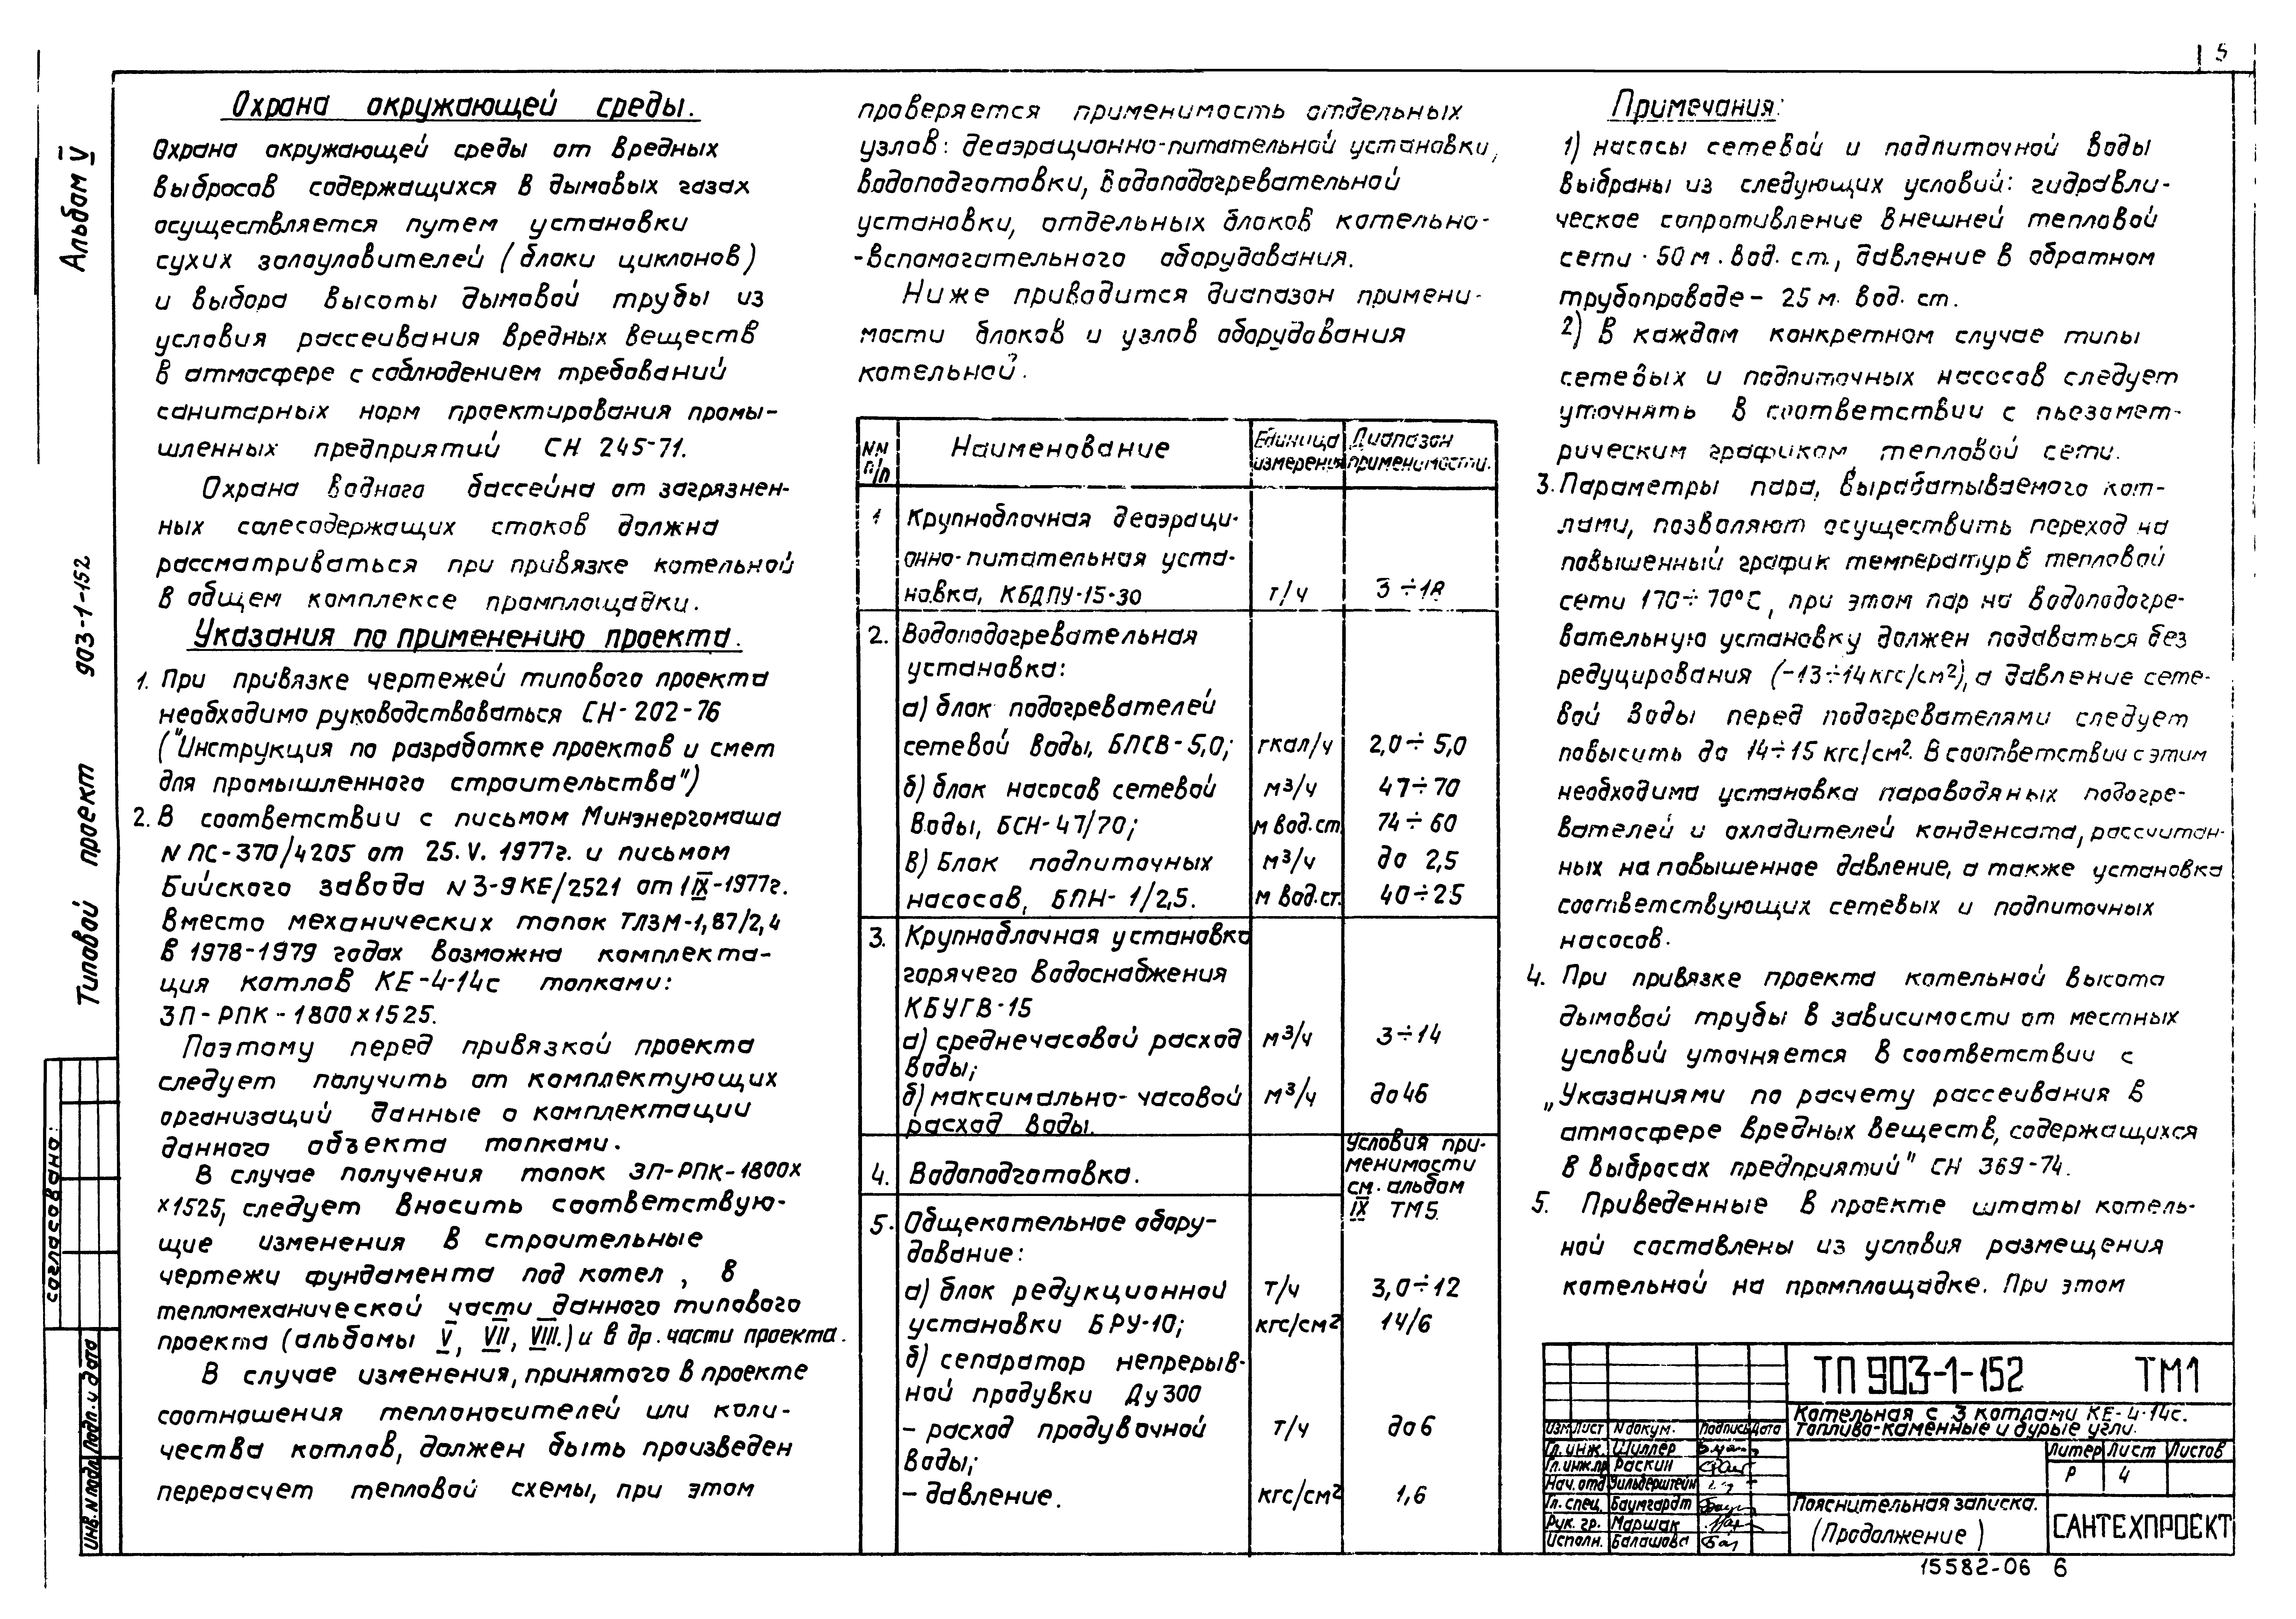 5
Альбом V
Типовой проект 903-1-152
Охрана окружающей среды.
Охрана окружающей среды от вредных
выбросов содержащихся в дымовых газах
осуществляется путем установки
сухих золоуловителей (блоки циклонов)
и выбора высоты дымовой трубы из
условия рассеивания вредных веществ
в атмосфере с соблюдением требований
санитарных норм проектирования промы-
шленных предприятий СН 245-71.
Охрана водного бассейна от загрязнен-
ных солесодержащих стоков должна
рассматриваться при привязке котельной
в общем комплексе промплощадки.
Указания по применению проекта.
1. При привязке чертежей типового проекта
необходимо руководствоваться СН-202-76
("Инструкция по разработке проектов и смет
для промышленного строительства")
2. В соответствии с письмом Минэнергомаша
N ПС-370/4205 от 25.V.1977г. и письмом
Бийского завода N 3-9КЕ/2521 от 1 IX-1977г.
вместо механических топок ТЛЗМ-1,87/2,4
в 1978-1979 годах возможна комплекта-
ция котлов КЕ-4-14с топками:
ЗП-РПК-1800х1525.
Поэтому перед привязкой проекта
следует получить от комплектующих
организаций данные о комплектации
данного объекта топками.
В случае получения топок ЗП-РПК-1800х
х1525, следует вносить соответствую-
щие изменения в строительные
чертежи фундамента под котел, в
тепломеханической части данного типового
проекта (альбомы V, VII, VIII.) и в др. части проекта.
В случае изменения, принятого в проекте
соотношения теплоносителей или коли-
чества котлов, должен быть произведен
перерасчет тепловой схемы, при этом
проверяется применимость отдельных
узлов: деаэрационно-питательной установки,
водоподготовки, водоподогревательной
установки, отдельных блоков котельно-
-вспомогательного оборудования.
Ниже приводится диапазон примени-
мости блоков и узлов оборудования
котельной.
NN п/п Наименование Единица измерения Диапазон применимости.
1 Крупноблочная деаэраци-
онно-питательная уста-
новка, КБДПУ-15-30 т/ч 3÷18
2. Водоподогревательная
установка:
а) блок подогревателей
сетевой воды, БПСВ-5,0; гкал/ч 2,0÷5,0
б) блок насосов сетевой м³/ч 47÷70
воды, БСН-47/70; м вод.ст. 74÷60
в) Блок подпиточных м³/ч до 2,5
насосов, БПН-1/2,5. м вод.ст. 40÷25
3. Крупноблочная установка
горячего водоснабжения
КБУГВ-15
а) среднечасовой расход м³/ч 3÷14
воды;
б) максимально-часовой м³/ч до 46
расход воды.
4. Водоподготовка. Условия при-
менимости
см. альбом
IX ТМ5.
5. Общекотельное обору-
дование:
а) блок редукционной т/ч 3,0÷12
установки БРУ-10; кгс/см² 14/6
б) сепаратор непрерыв-
ной продувки Ду 300
- расход продувочной т/ч до 6
воды;
- давление. кгс/см² 1,6
Примечания:
1) насосы сетевой и подпиточной воды
выбраны из следующих условий: гидравли-
ческое сопротивление внешней тепловой
сети - 50 м. вод. ст., давление в обратном
трубопроводе - 25 м. вод. ст.
2) В каждом конкретном случае типы
сетевых и подпиточных насосов следует
уточнять в соответствии с пьезомет-
рическим графиком тепловой сети.
3. Параметры пара, вырабатываемого кот-
лами, позволяют осуществить переход на
повышенный график температур в тепловой
сети 170÷70°С, при этом пар на водоподогре-
вательную установку должен подаваться без
редуцирования (-13÷14 кгс/см²), а давление сете-
вой воды перед подогревателями следует
повысить до 14÷15 кгс/см². В соответствии с этим
необходима установка пароводяных подогре-
вателей и охладителей конденсата, рассчитан-
ных на повышенное давление, а также установка
соответствующих сетевых и подпиточных
насосов.
4. При привязке проекта котельной высота
дымовой трубы в зависимости от местных
условий уточняется в соответствии с
„Указаниями по расчету рассеивания в
атмосфере вредных веществ, содержащихся
в выбросах предприятий" СН 369-74.
5. Приведенные в проекте штаты котель-
ной составлены из условия размещения
котельной на промплощадке. При этом
согласовано:
Инв. N подл. Подп. и дата
ТП 903-1-152 ТМ1
Котельная с 3 котлами КЕ-4-14с.
Топливо-каменные и бурые угли.
Изм Лист N докум. Подпись Дата
Гл. инж. Шиллер
Гл. инж. пр Раскин
Нач. отд Зильберштейн
Гл. спец. Баумгардт
Рук. гр. Маршак
Исполн. Балашова
Литер Лист Листов
Р 4
Пояснительная записка.
(Продолжение)
САНТЕХПРОЕКТ
15582-06 6